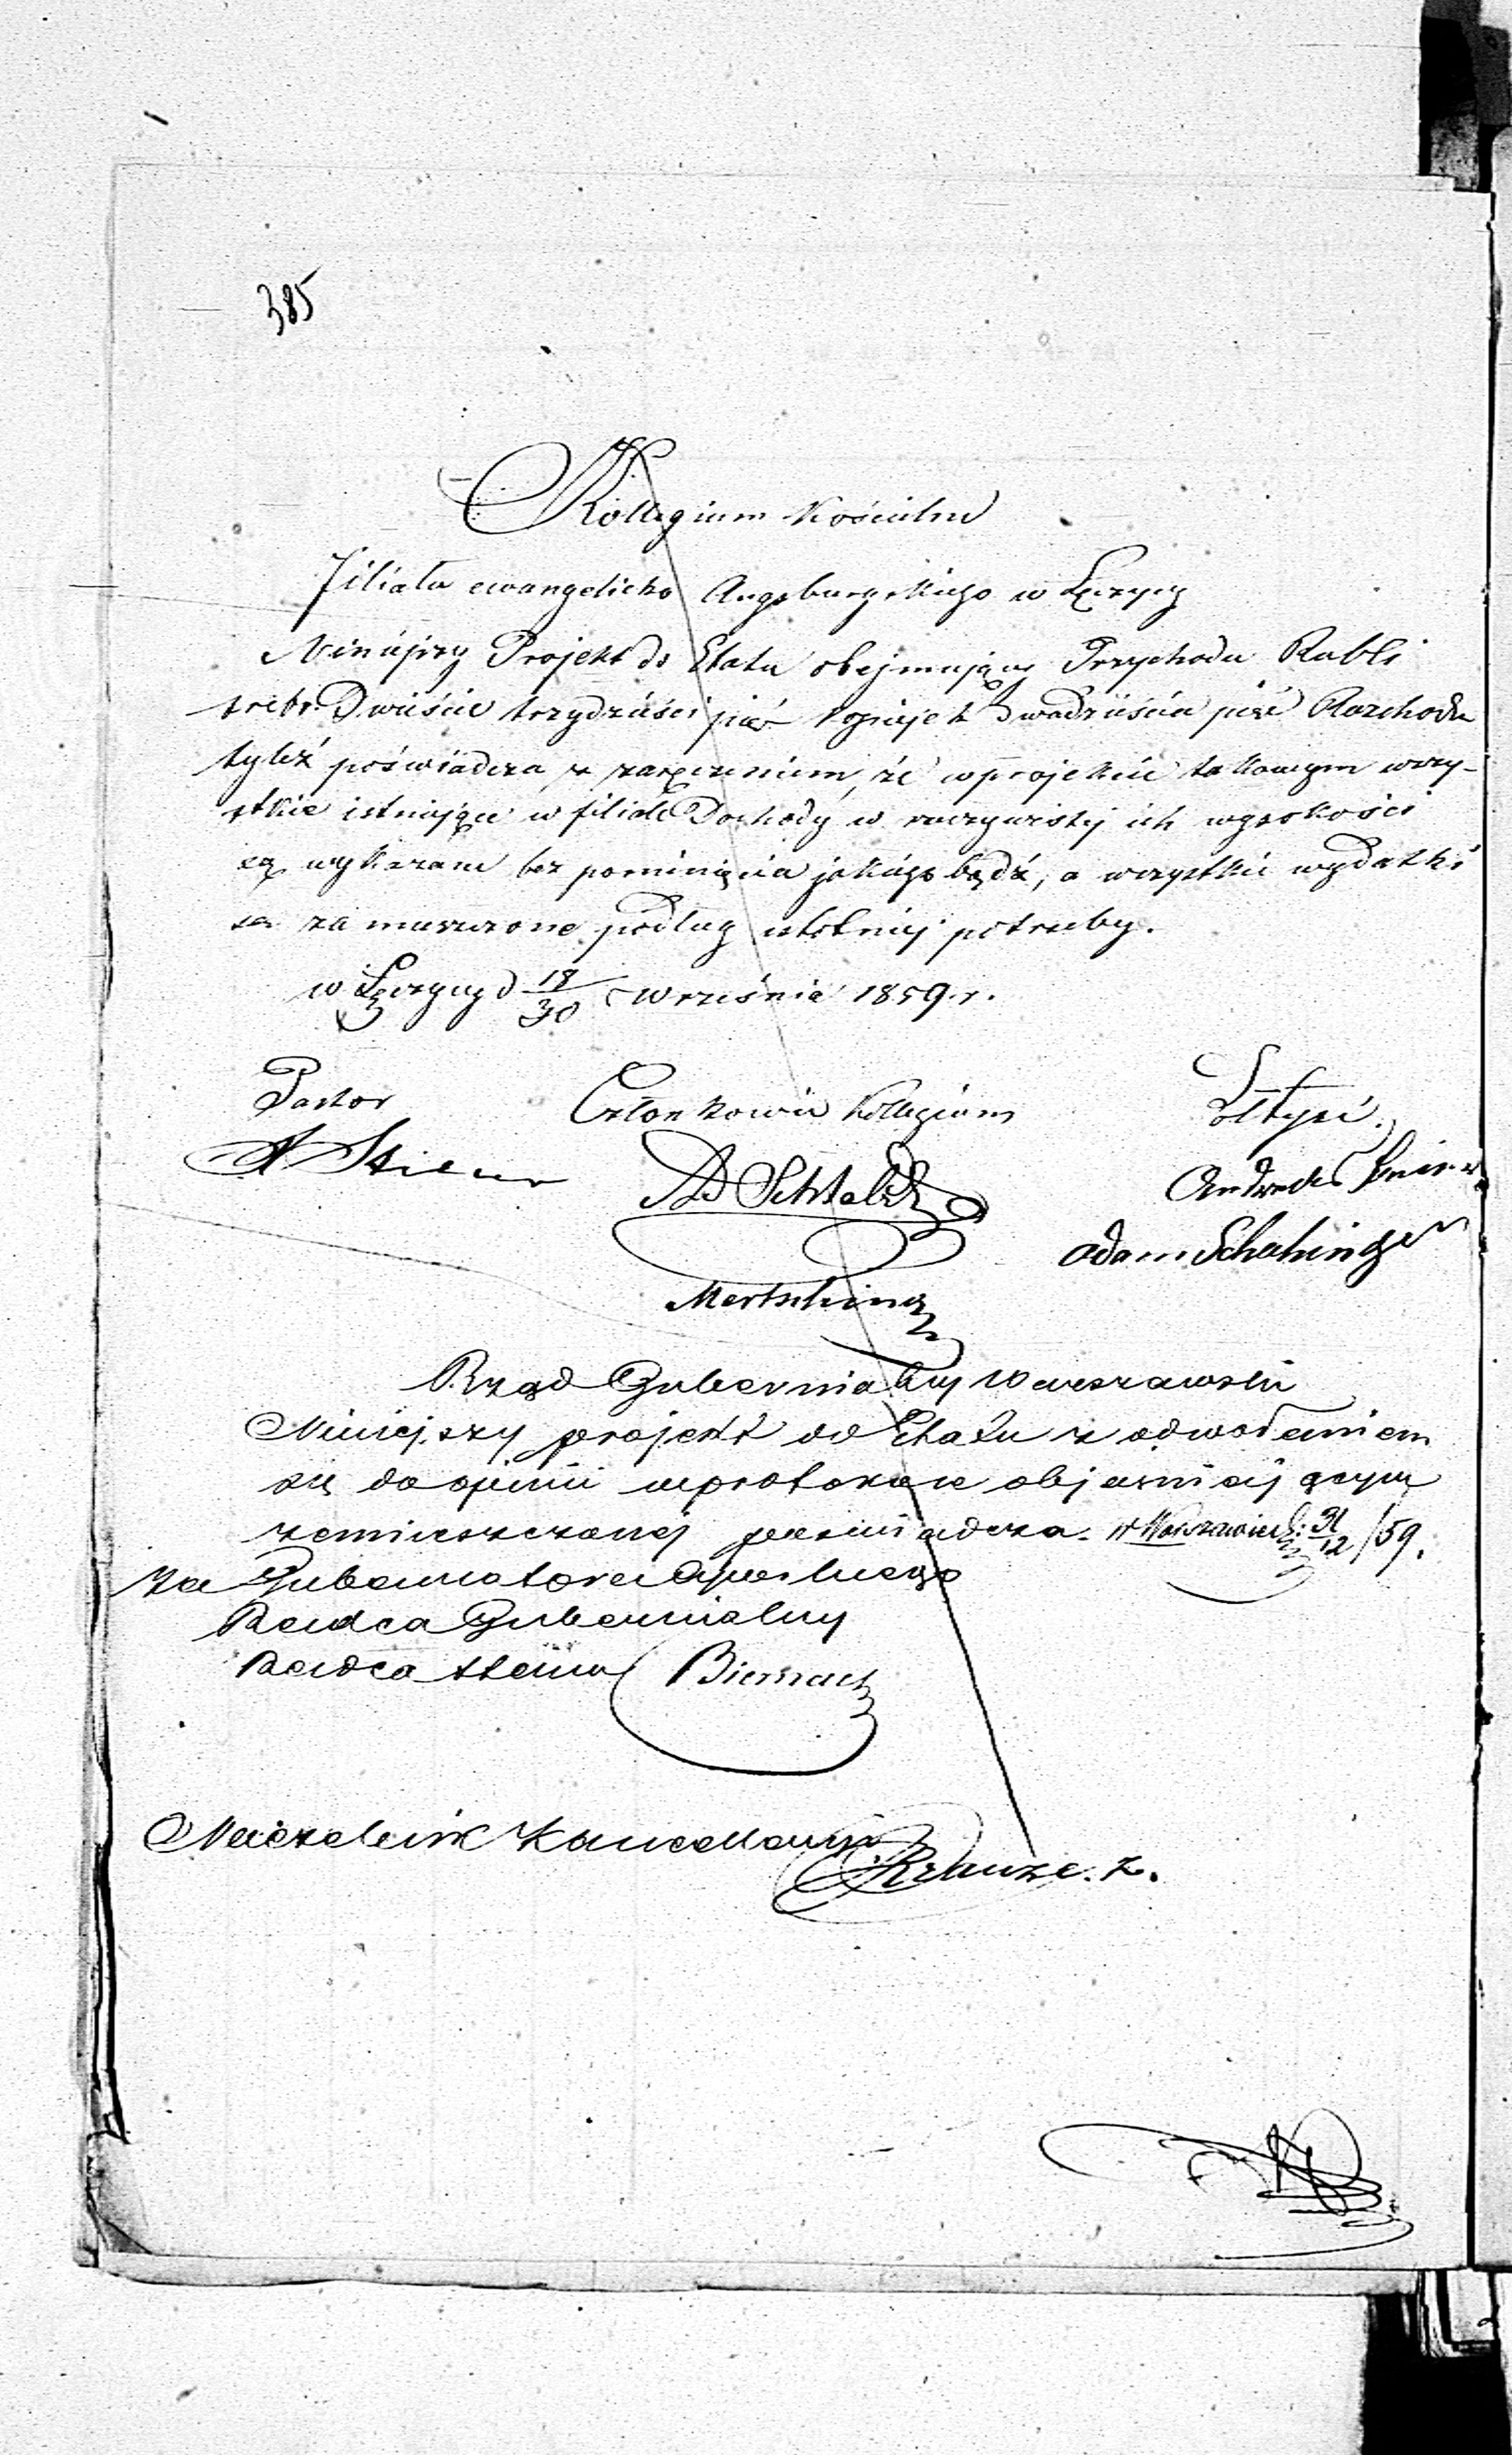 385
Kollegium Kościelne
Filiału ewangelicko Augsburgskiego w Łęczycy
Niniejszy Projekt do Etatu obejmujący Przychodu Rubli
srebr. Dwieście trzydzieści pięć kopiejek Dwadzieścia pięć Rozchodu
tyleż poświadcza, z zaręczeniem, że w projekcie takowym wszy-
stkie istniejące w filiale Dochody w rzeczywistej ich wysokości
są wykazane bez pominięcia jakiego bądź, a wszystkie wydatki
są zamieszczone podług istotniej potrzeby.
w Łęczycy d 18/30 Września 1859 r.
Pastor Członkowie Kollegium Sołtysi.
Andreas
Adam Schahinger
Mertsching
Rząd Gubernialny Warszawski
Niniejszy projekt do Etatu z odwołaniem
się do opinii w protokóle objaśniającym
zamieszczonej poświadcza. w Warszawie d: 31/12 /59.
Za Gubernatora Cywilnego
Radca Gubernialny
Radca Stanu Biernacki
Naczelnik Kancellaryi Krauze. z.